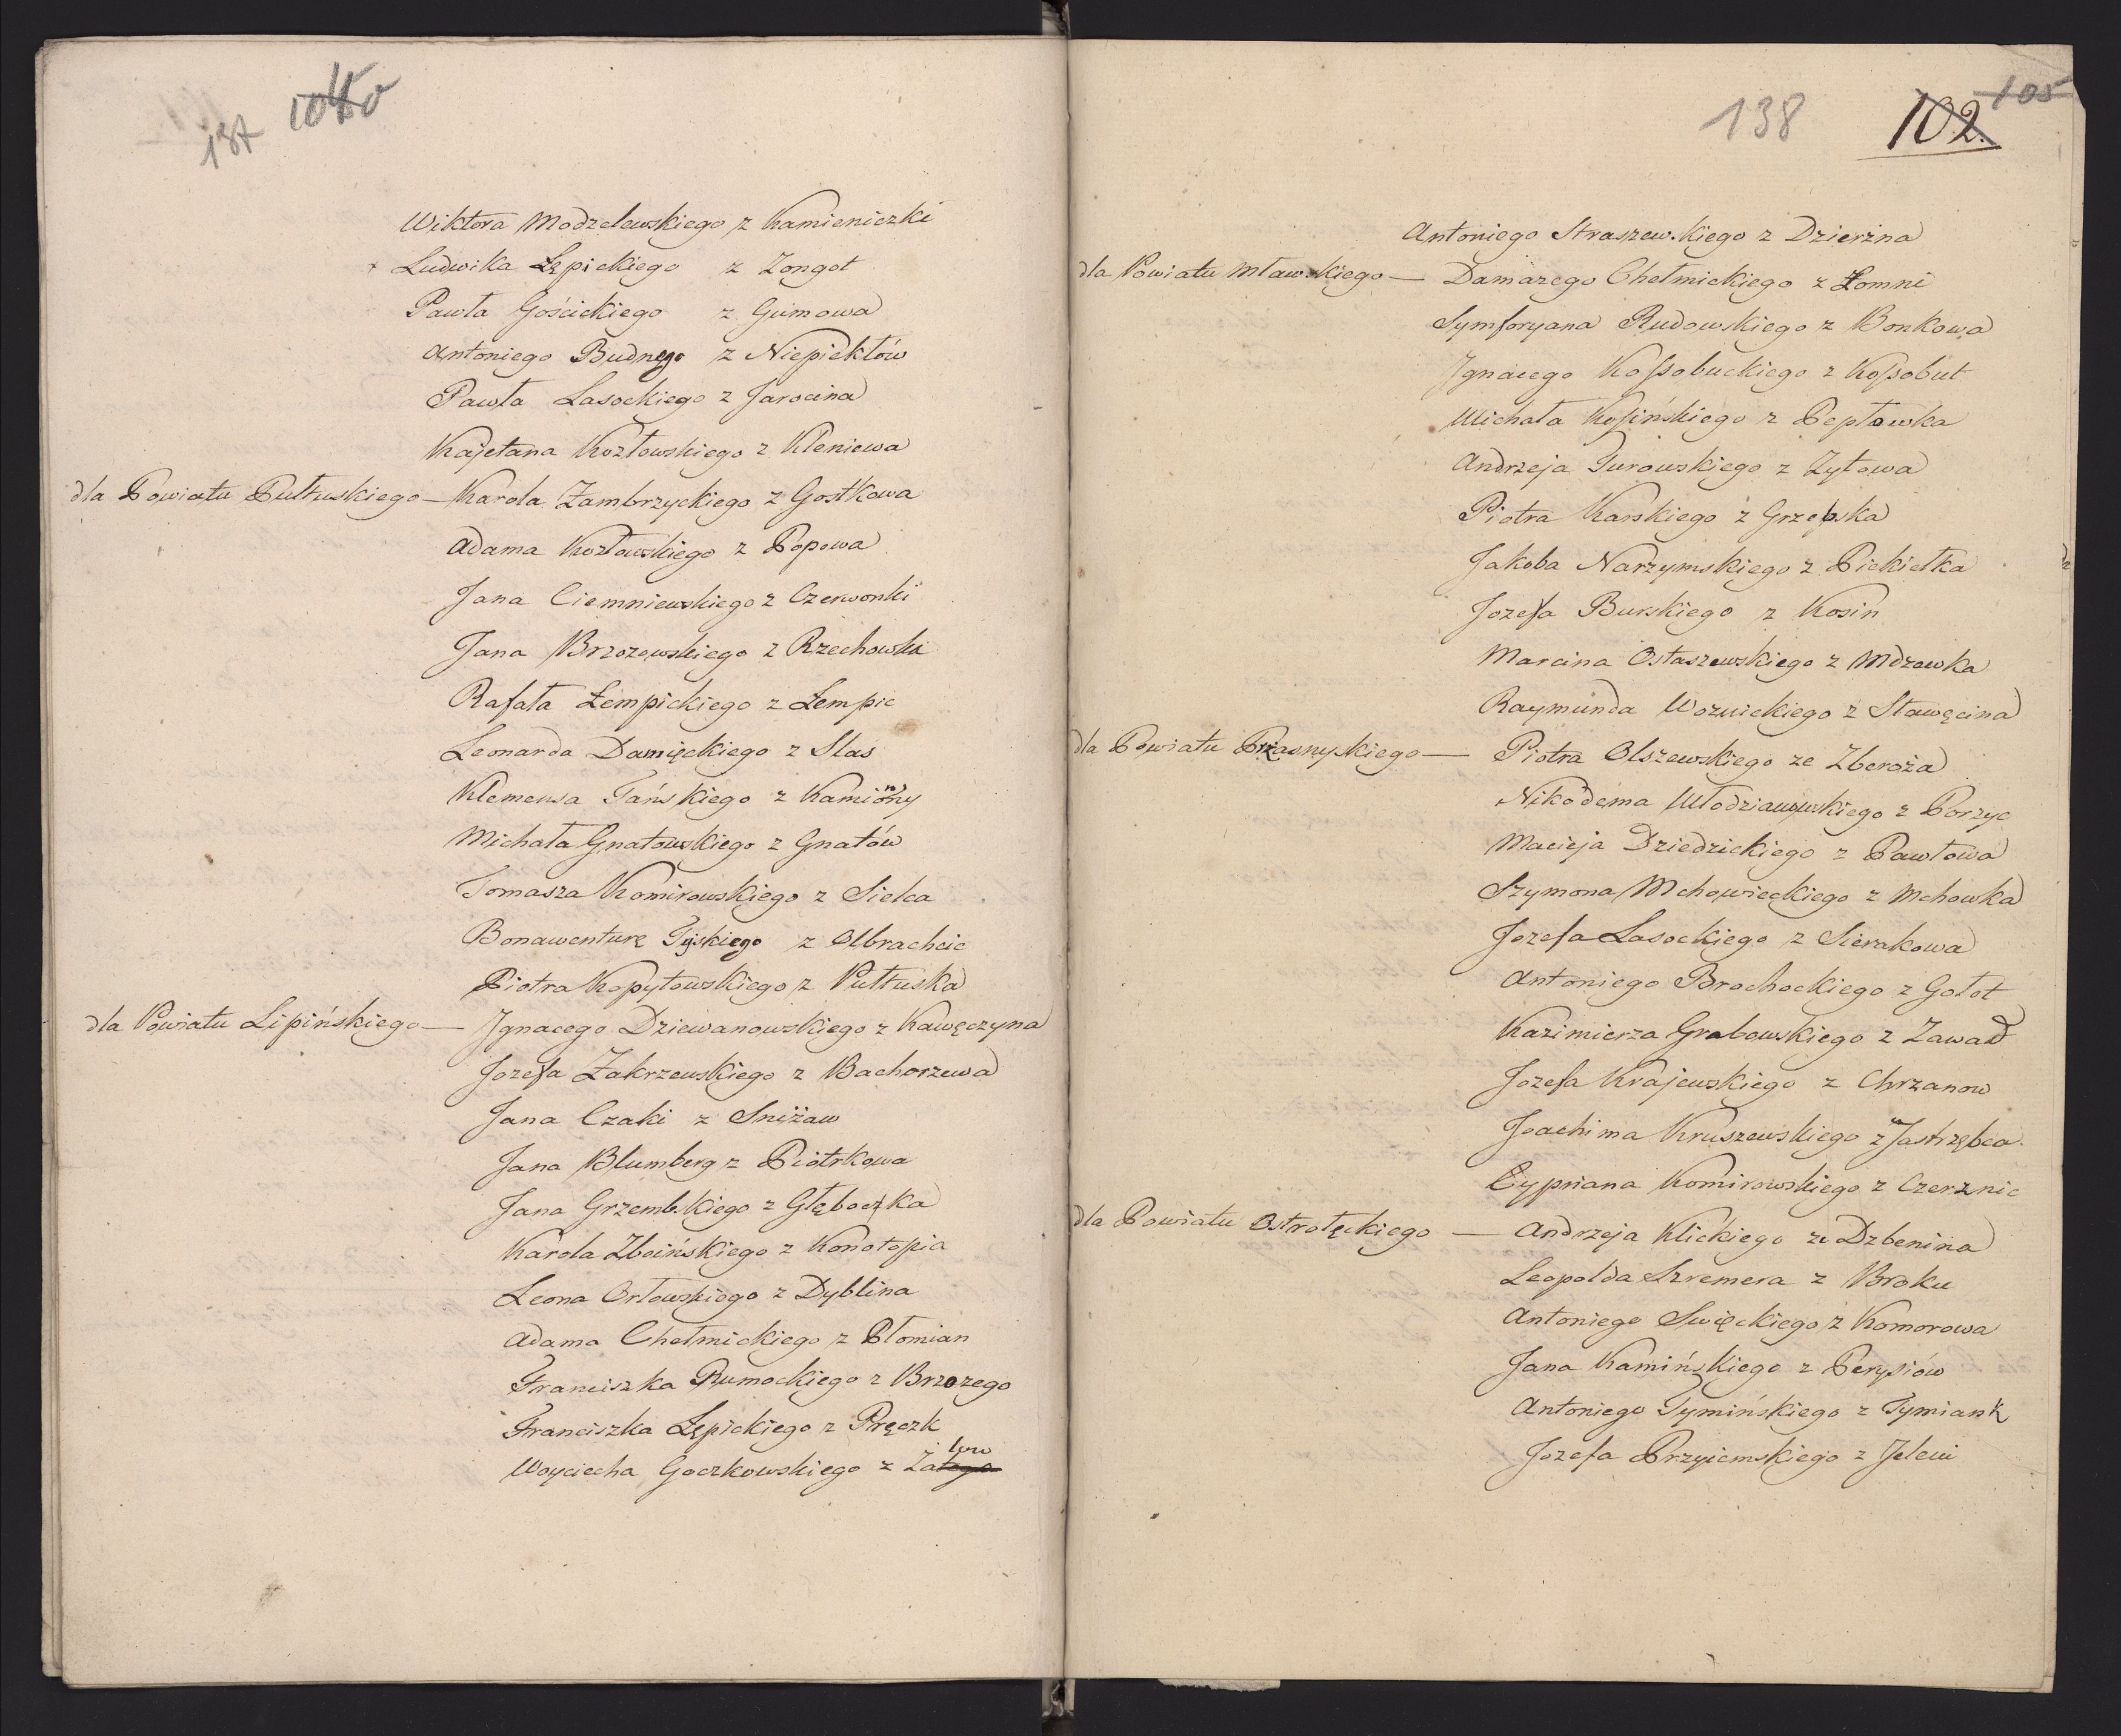 137
Wiktora Modzelewskiego z Kamieniczki
Ludwika Łępickiego z Zongot
Pawła Gościckiego z Gumowa
Antoniego Budnego z Niepiekłów
Pawła Lasockiego z Jarocina
Kajetana Kozłowskiego z Kleniewa
dla Powiatu Pułtuskiego — Karola Zambrzyckiego z Gostkowa
Adama Kozłowskiego z Popowa
Jana Ciemniewskiego z Czerwonki
Jana Brzozowskiego z Rzechowka
Rafała Łempickiego z Łempic
Leonarda Damięckiego z Slas
Klemensa Tańskiego z
Michała Gnatowskiego z Gnatów
Tomasza Komirowskiego z Sielca
Bonawenturę Tyskiego z Olbrachcic
Piotra Kopytowskiego z Pułtuska
dla Powiatu Lipińskiego — Ignacego Dziewanowskiego z Kawęczyna
Jozefa Zakrzewskiego z Bachorzewa
Jana Czaki z Sniżaw
Jana Blumberg z Piotrkowa
Jana Grzembskiego z Głęboczka
Karola Zboińskiego z Konotopia
Leona Orłowskiego z Dyblina
Adama Chełmickiego z Płomian
Franciszka Rumockiego z Brzozego
Franciszka Łępickiego z Pręczk
Woyciecha Goczkowskiego z
138 102. 105
Antoniego Straszewskiego z Dzierżna
dla Powiatu Mławskiego — Damazego Chełmickiego z Łomni
Symforyana Rudowskiego z Bonkowa
Ignacego Kossobuckiego z Kossobut
Michała Kosińskiego z Pepłowka
Andrzeja Turowskiego z Zytowa
Piotra Karskiego z Grzebska
Jakoba Narzymskiego z Piekiełka
Jozefa Burskiego z Kosin
Marcina Ostaszewskiego z Mdzowka
Raymunda Woznickiego z Sławęcina
dla Powiatu Przasnyskiego — Piotra Olszewskiego ze Zberoża
Nikodema Młodzianowskiego z Porzyc
Macieja Dziedzickiego z Pawłowa
Szymona Mchowieckiego z Mchowka
Jozefa Lasockiego z Sierakowa
Antoniego Brochockiego z Gołot
Kazimierza Grabowskiego z Zawad
Jozefa Krajewskiego z Chrzanow
Joachima Kruszewskiego z Jastrzębca
Cypriana Komirowskiego z Czerznic
dla Powiatu Ostrołęckiego — Andrzeja Klickiego ze Dzbenina
Leopolda Szremera z Broku
Antoniego Swięckiego z Komorowa
Jana Kamińskiego z Perysiów
Antoniego Tymińskiego z Tymiank
Jozefa Przyiemskiego z Jeleni